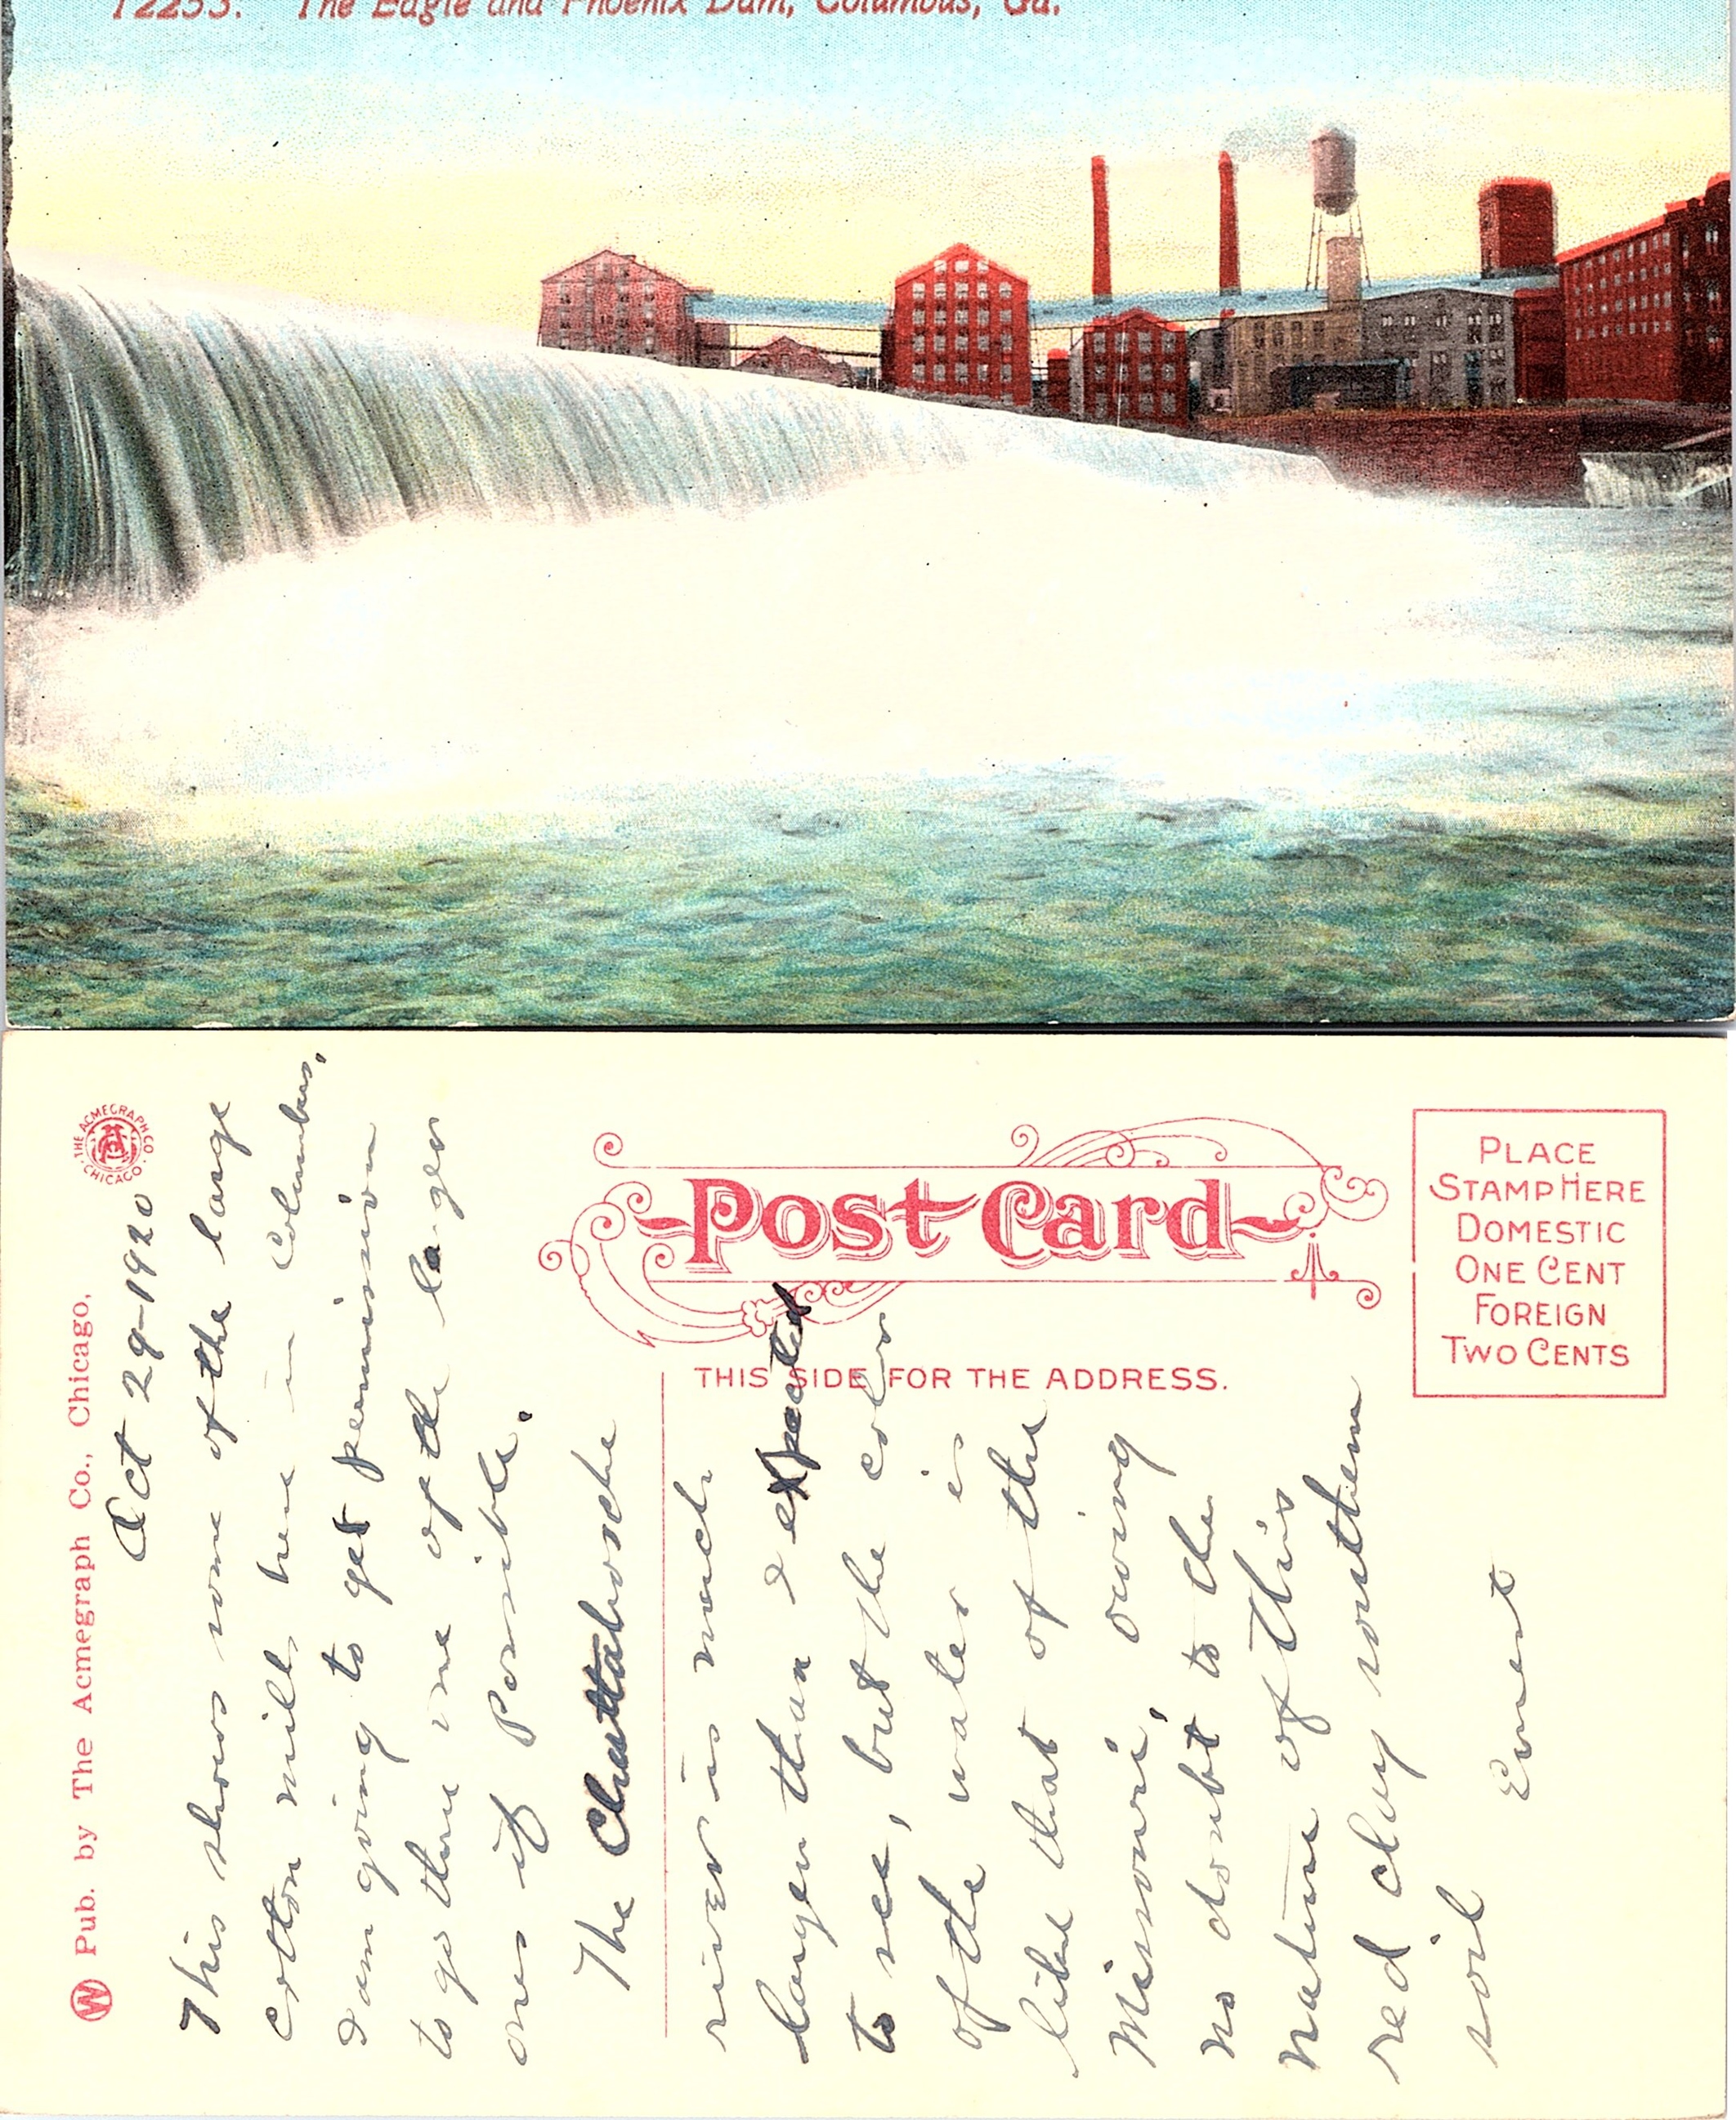 12253. The Eagle and Phoenix Dam, Columbus, Ga.
THE ACMEGRAPH CO
CHICAGO
W Pub. by The Acmegraph Co., Chicago,
Oct 29-1920
This shows some of the large
cotton mills here in Columbus,
I am going to get permission
to go thru one of the larger
ones if possible.
The Chattahoochee
river is much
larger than I expected
to see, but the color
of the water is
like that of the
Missouri, owing
no doubt to the
nature of this
red clay southern
soil
Ernest
Post Card
THIS SIDE FOR THE ADDRESS.
PLACE
STAMP HERE
DOMESTIC
ONE CENT
FOREIGN
TWO CENTS